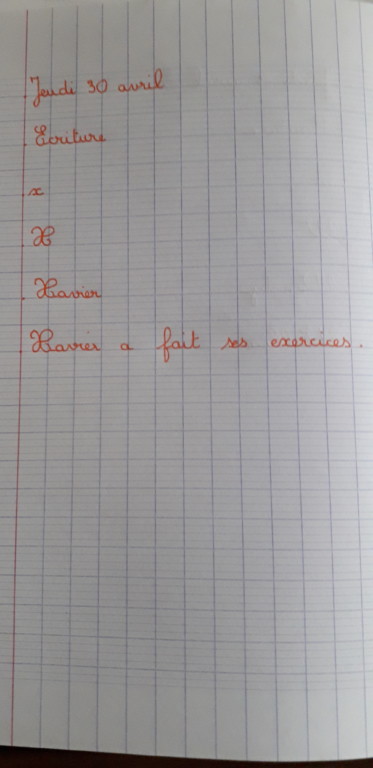 Jeudi 30 avril
Ecriture
x
X
Xavier
Xavier a fait ses exercices.